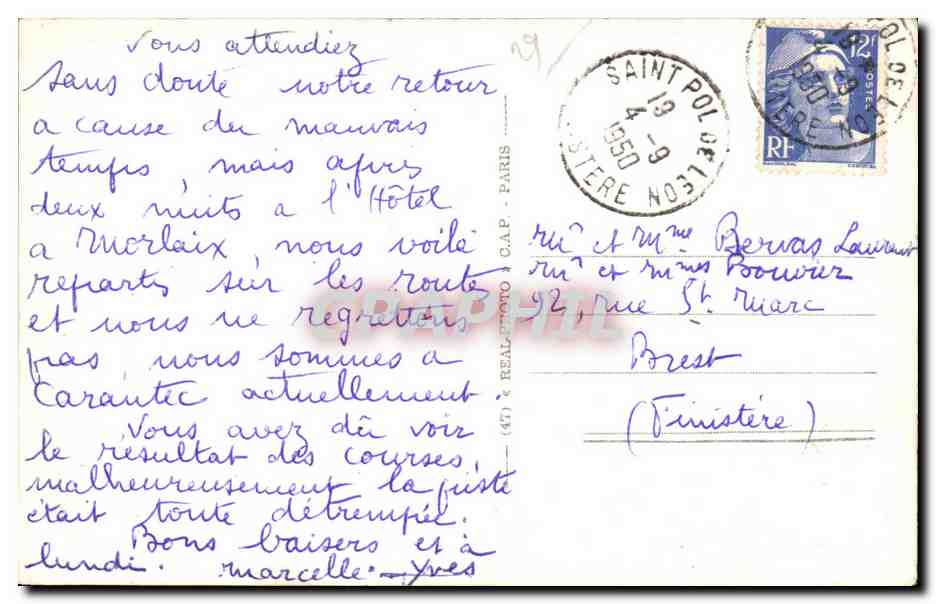 Vous attendiez
sans doute notre retour
a cause du mauvais
temps, mais après
deux nuits a l'Hôtel
a Morlaix, nous voilà
repartis sur les routes
et nous ne regrettons
pas, nous sommes a
Carantec actuellement.
Vous avez dû voir
le résultat des courses,
malheureusement la piste
était toute détrempée.
Bons baisers et à
lundi. Marcelle - Yves
29
(47) « REAL-PHOTO » C.A.P. - PARIS
SAINT POL DE LEON
19
4 - 9
1950
FINISTERE
12F
POSTES
RF
SAINT POL DE LEON
19
4 - 9
1950
FINISTERE
Mr et Mme Bervas Laurent
Mr et Mmes Bouvier
92, rue St Marc
Brest
(Finistère)
GRAPHIL